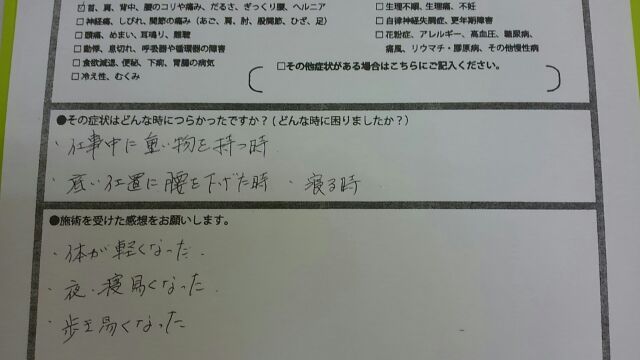 ☑首、肩、背中、腰のコリや痛み、だるさ、ぎっくり腰、ヘルニア
□神経痛、しびれ、関節の痛み（あご、肩、肘、股関節、ひざ、足）
□頭痛、めまい、耳鳴り、難聴
□動悸、息切れ、呼吸器や循環器の障害
□食欲減退、便秘、下痢、胃腸の病気
□冷え性、むくみ
□生理不順、生理痛、不妊
□自律神経失調症、更年期障害
□花粉症、アレルギー、高血圧、糖尿病、
痛風、リウマチ・膠原病、その他慢性病
□その他症状がある場合はこちらにご記入ください。
●その症状はどんな時につらかったですか？(どんな時に困りましたか？)
・仕事中に重い物を持つ時
・低い位置に腰を下げた時 ・寝る時
●施術を受けた感想をお願いします。
・体が軽くなった
・夜、寝易くなった
・歩き易くなった